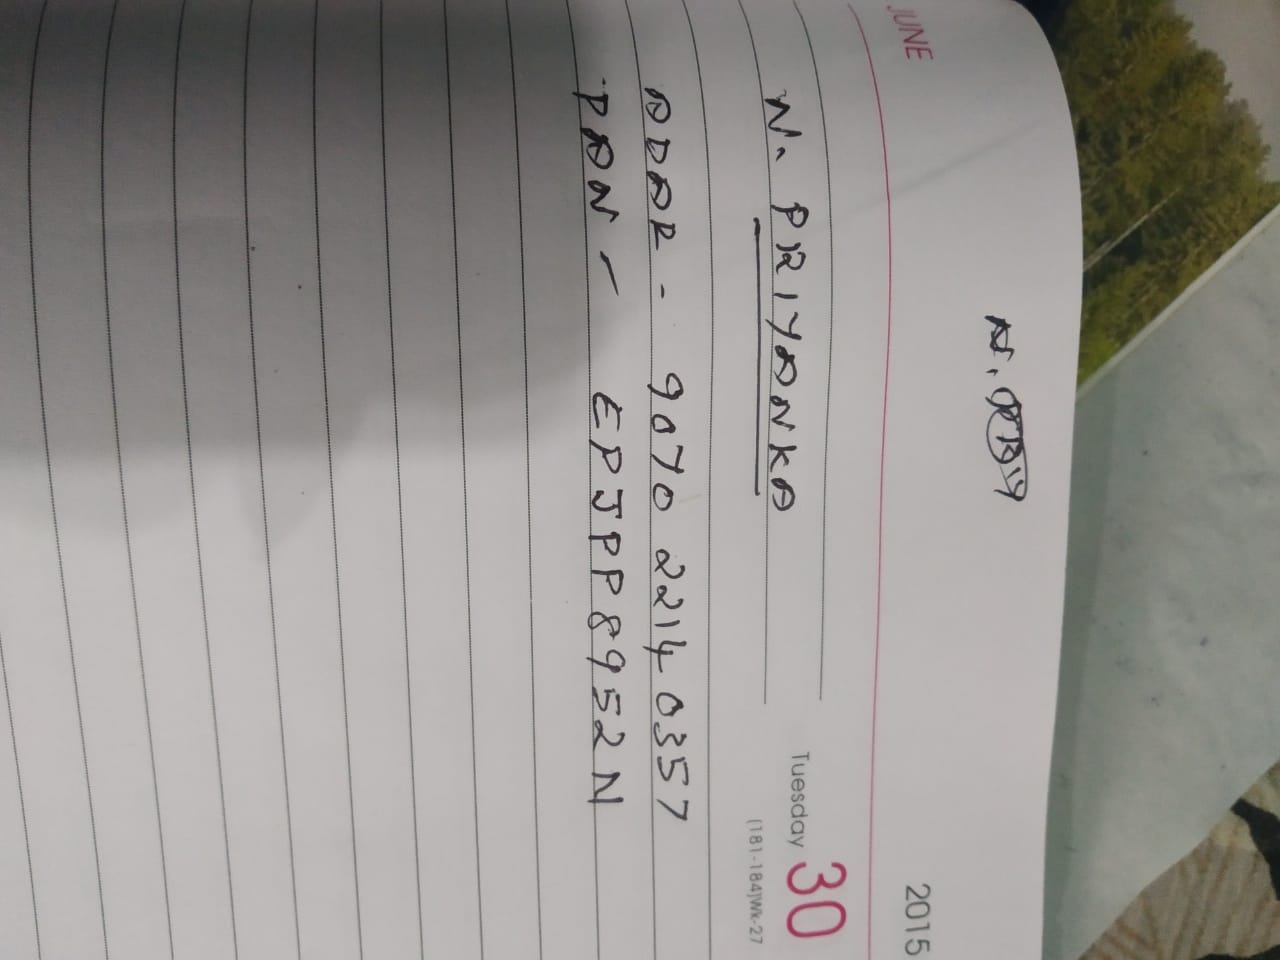 JUNE 2015
Tuesday 30
(181-184)Wk-27
N. PRIYANKA
ADAR - 9070 2214 0357
PAN - EPJPP8952N